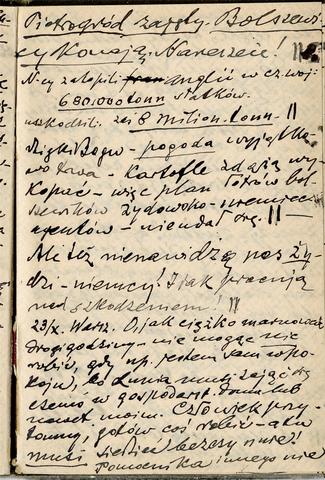 Piotrogród zajęty. Bolszewi-
cy konają. Nareszcie! ||
N-cy zatopili Anglii w cz. woj:
680.000 tonn statków.
uszkodzili. zaś 8 milion. tonn. ||
dzięki Bogu - pogoda wyjątko-
wo trwa - Kartofle zdążą wy-
kopać - więc plan łotrów bol-
szewików żydowsko-niemiec.
agentów - nie udał się. || —
Ależ też nienawidzą nas ży-
dzi - niemcy! I jak pracują
nad szkodzeniem! ||
23/X. Warsz. O, jak ciężko marnować
drogie godziny - nie mogąc nic
robić, gdy np. jestem sam w po-
koju, bo Lunia musi zająć się
czemś w gospodarst. domu lub
nawet moim. Człowiek przy-
tomny, gotów coś robić - a tu
musi siedzieć bezczynnie!
Pomocnika innego nie